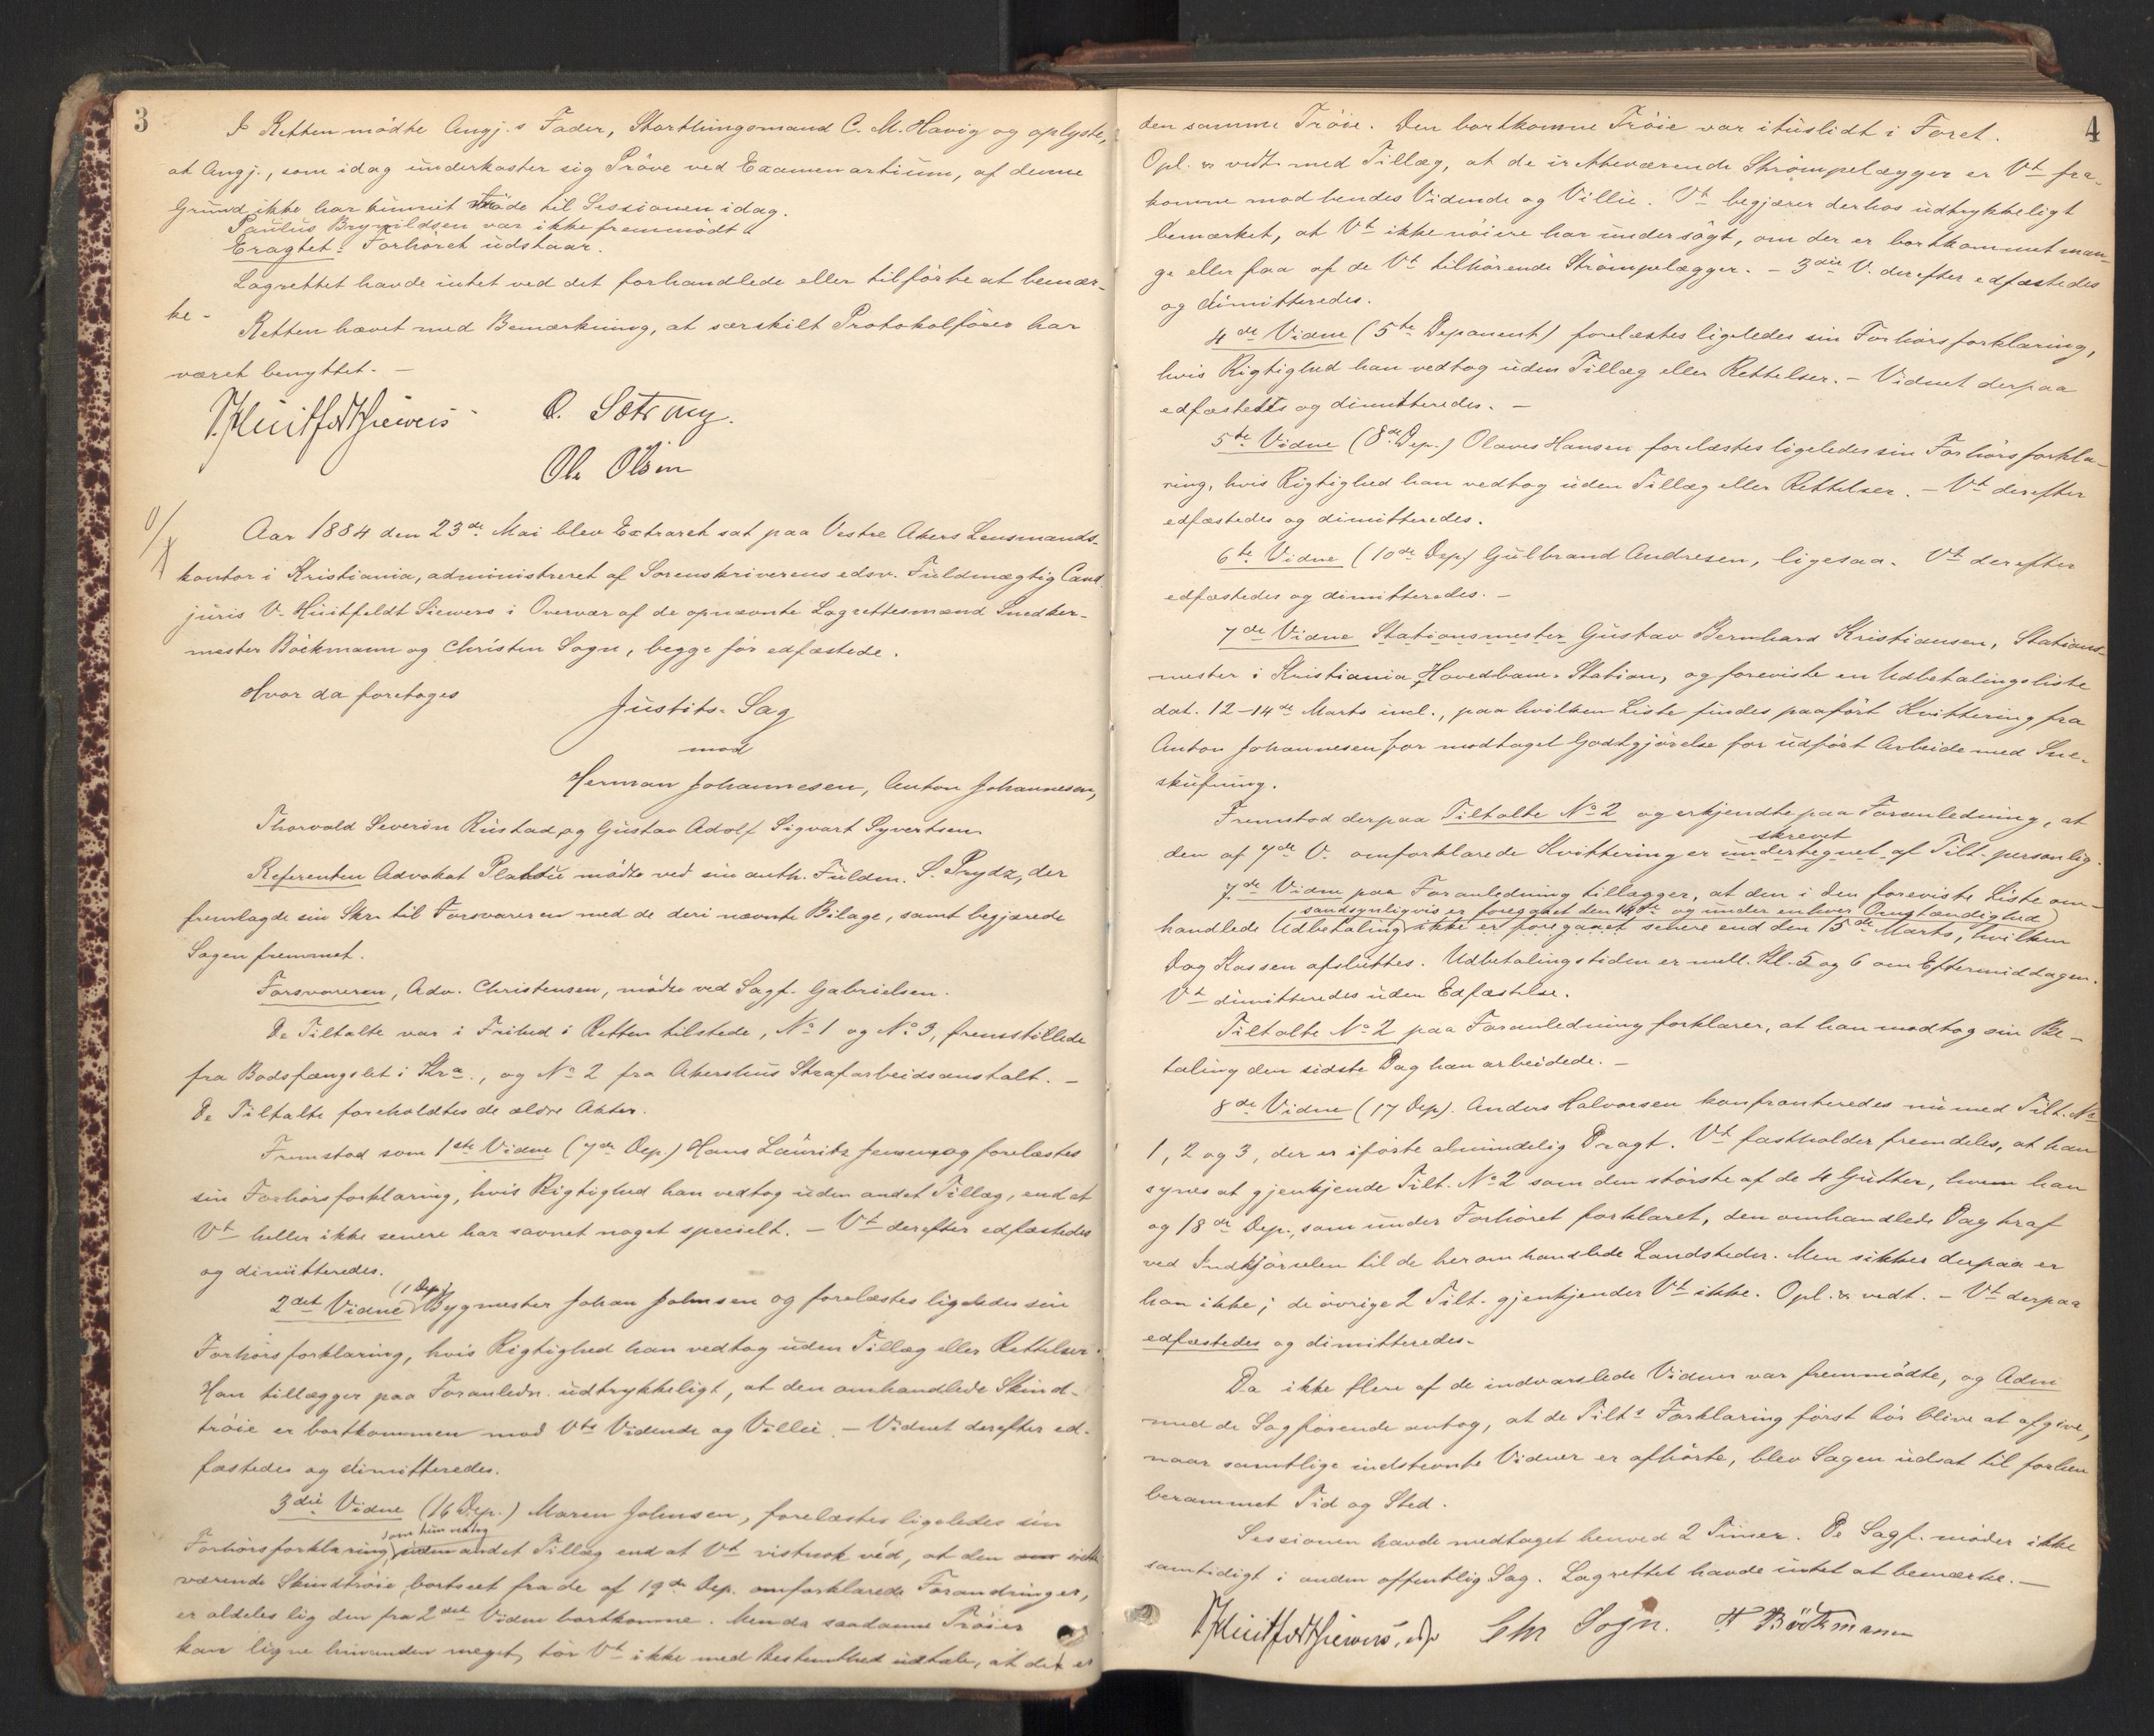 3
I Retten mødte Angj.s Fader, Storthingsmand C. M. Havig og oplyste,
at Angj., som idag underkaster sig Prøve ved Examen artium, af denne
Grund ikke har kunnet møde til Sessionen idag.
Paulus Brynildsen var ikke fremmødt.
Eragtet: Forhøret udstaar.
Lagrettet havde intet ved det forhandlede eller tilførte at bemær-
ke -
Retten hævet med Bemærkning, at særskilt Protokolfører har
været benyttet. -
V. Huitfeldt Siewers
O. Sætrang.
Ole Olsen
0/
Aar 1884 den 23de Mai blev Extraret sat paa Vestre Akers Lensmands-
kontor i Kristiania, administreret af Sorenskriverens edsv. Fuldmægtig Cand.
juris V. Huitfeldt Siewers i Overvær af de opnævnte Lagrettesmænd Snedker-
mester Böckmann og Christen Sogn, begge før edfæstede.
Hvor da foretoges
Justits-Sag
mod
Herman Johannesen, Anton Johannesen,
Thorvald Severin Rustad og Gustav Adolf Sigvart Syvertsen.
Referenten Advokat Platou mødte ved sin auth. Fuldm. S. Prydz, der
fremlagde sin Skr. til Forsvareren med de deri nævnte Bilage, samt begjærede
Sagen fremmet.
Forsvareren, Adv. Christensen, mødte ved Sagf. Gabrielsen.
De Tiltalte var i Frihed i Retten tilstede, No 1 og No 3, fremstillede
fra Bodsfængslet i Kra., og No 2 fra Akershus Strafarbeidsanstalt. -
De Tiltalte foreholdtes de ældre Akter.
Fremstod som 1ste Vidne (7de Dep.) Hans Lauritz Jensen og forelæstes
sin Forhørsforklaring, hvis Rigtighed han vedtog uden andet Tillæg, end at
Vt heller ikke senere har savnet noget specielt. - Vt derefter edfæstedes
og dimitteredes.
(1 Dep)
2det Vidne Bygmester Johan Johnsen og forelæstes ligeledes sin
Forhørsforklaring, hvis Rigtighed han vedtog uden Tillæg eller Rettelser.
Han tillægger paa Foranledn. udtrykkeligt, at den omhandlede Skind-
trøie er bortkommen mod Vts Vidende og Villie. - Vidnet derefter ed-
fæstedes og dimitteredes.
3die Vidne (16 Dep.) Maren Johnsen, forelæstes ligeledes sin
som hun vedtog
Forhørsforklaring, uden andet Tillæg end at Vt vistnok véd, at den
værende Skindtrøie, bortseet fra de af 19de Dep. omforklarede Forandringer,
er aldeles lig den fra 2det Vidne bortkomne. Men da saadanne Trøier
kan ligne hinanden meget, tør Vt ikke med Bestemthed udtale, at det er
4
den samme Trøie. Den bortkomne Trøie var ituslidt i Foret.
Opl. & vedt. med Tillæg, at de iretteværende Strømpelægger er Vt fra-
komne mod hendes Vidende og Villie. Vt begjærer derhos udtrykkeligt
bemærket, at Vt ikke nøiere har undersøgt, om der er bortkommet man-
ge eller faa af de Vt tilhørende Strømpelægger. - 3die V. derefter edfæstedes
og dimitteredes.
4de Vidne (5te Deponent) forelæstes ligeledes sin Forhørsforklaring,
hvis Rigtighed han vedtog uden Tillæg eller Rettelser. - Vidnet derpaa
edfæstedes og dimitteredes. -
5te Vidne (8de Dep.) Olaves Hansen forelæstes ligeledes sin Forhørsforkla-
ring, hvis Rigtighed han vedtog uden Tillæg eller Rettelser. - Vt derefter
edfæstedes og dimitteredes.
6te Vidne (10de Dep) Gulbrand Andresen, ligesaa. Vt derefter
edfæstedes og dimitteredes. -
7de Vidne Stationsmester Gustav Bernhard Kristiansen, Stations-
mester i Kristiania Hovedbane-Station, og foreviste en Udbetalingsliste
dat. 12-14de Marts incl., paa hvilken Liste findes paaført Kvittering fra
Anton Johannesen for modtaget Godtgjørelse for udført Arbeide med Sne-
skufning.
Fremstod derpaa Tiltalte No 2 og erkjendte paa Foranledning, at
skrevet
den af 7de V. omforklarede Kvittering er undertegnet af Tilt. personlig.
7de Vidne paa Foranledning tillægger, at den i den foreviste Liste om-
sandsynligvis er foregaaet den 14de og under enhver Omstændighed
handlede Udbetaling ikke er foregaaet senere end den 15de Marts, hvilken
Dag Kassen afsluttes. Udbetalingstiden er mell. Kl. 5 og 6 om Eftermiddagen.
Vt dimitteredes uden Edfæstelse.
Tiltalte No 2 paa Foranledning forklarer, at han modtog sin Be-
taling den sidste Dag han arbeidede. -
8de Vidne (17 Dep). Anders Halvorsen konfronteredes nu med Tilt. No
1, 2 og 3, der er iførte almindelig Dragt. Vt fastholder fremdeles, at han
synes at gjenkjende Tilt. No 2 som den største af de 4 Gutter, hvem han
og 18de Dep., som under Forhøret forklaret, den omhandlede Dag traf
ved Indkjørselen til de her omhandlede Landsteder. Men sikker derpaa er
han ikke; de øvrige 2 Tilt. gjenkjender Vt ikke. Opl. & vedt. - Vt derpaa
edfæstedes og dimitteredes.
Da ikke flere af de indvarslede Vidner var fremmødte, og Adm
med de Sagførende antog, at de Tilts Forklaring først bør blive at afgive,
naar samtlige indstevnte Vidner er afhørte, blev Sagen udsat til forhen
berammet Tid og Sted.
Sessionen havde medtaget henved 2 Timer. De Sagf. møder ikke
samtidigt i anden offentlig Sag. Lagrettet havde intet at bemærke. -
V. Huitfeldt Siewers,
Chr Sogn.
H Böckmann